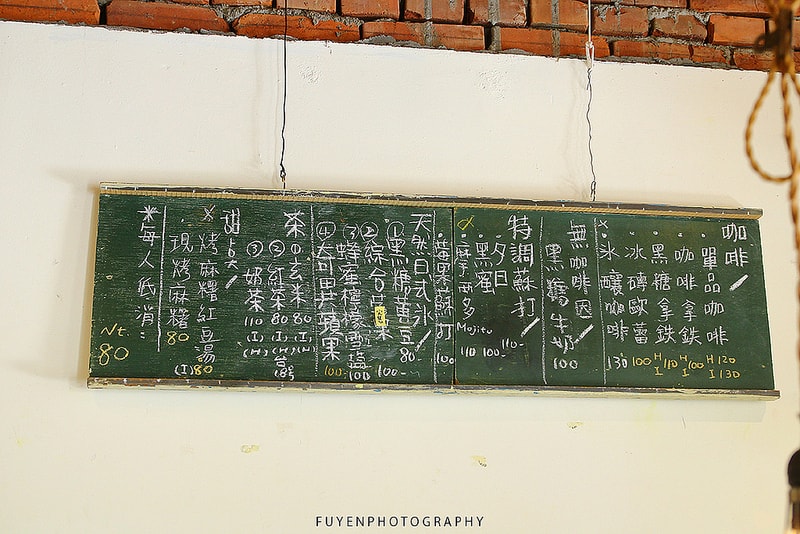 咖啡
單品咖啡 H120 I130
咖啡拿鐵 H100 I
黑糖拿鐵 H110 I
冰磚歐蕾 100
冰釀咖啡 130
無咖啡因
黑糖牛奶 100
特調蘇打
夕日 110
黑蜜 100
摩西多 Mojito 110
莓果蘇打 100
天然日式冰
①黑糖黃豆 80
②綜合 100
③蜂蜜檸檬 100
④大可思蘋果 100
茶
①玄米 80 (H)
②紅茶 80 (I)(H)
③奶茶 110 (I)(H)
甜點
烤麻糬紅豆湯 (I) 80
現烤麻糬 80
*每人低消:
Nt.
80
FUYENPHOTOGRAPHY